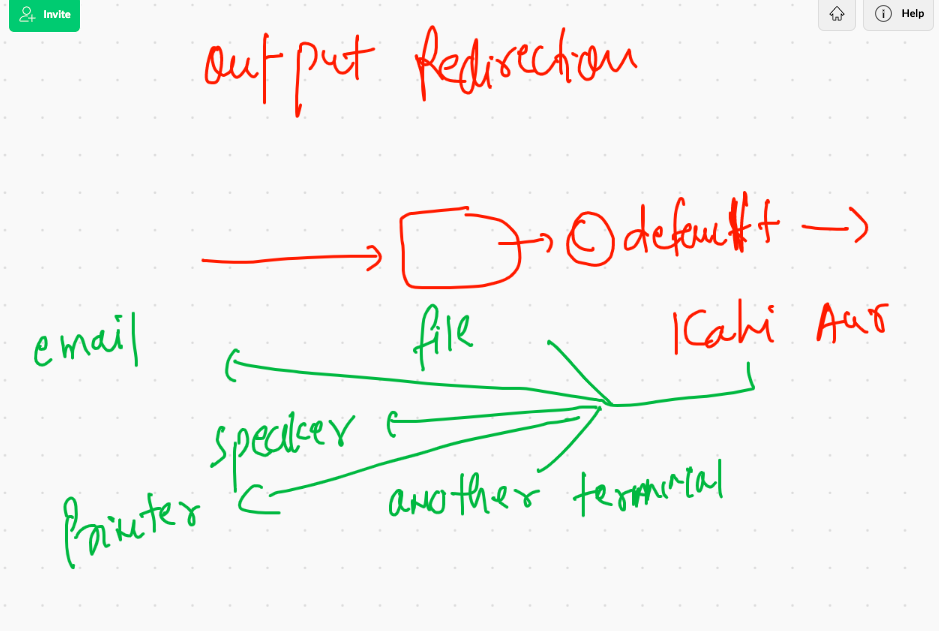 Invite
Help
output Redirection
default
Kahi Aur
email
file
speaker
Printer
another terminal